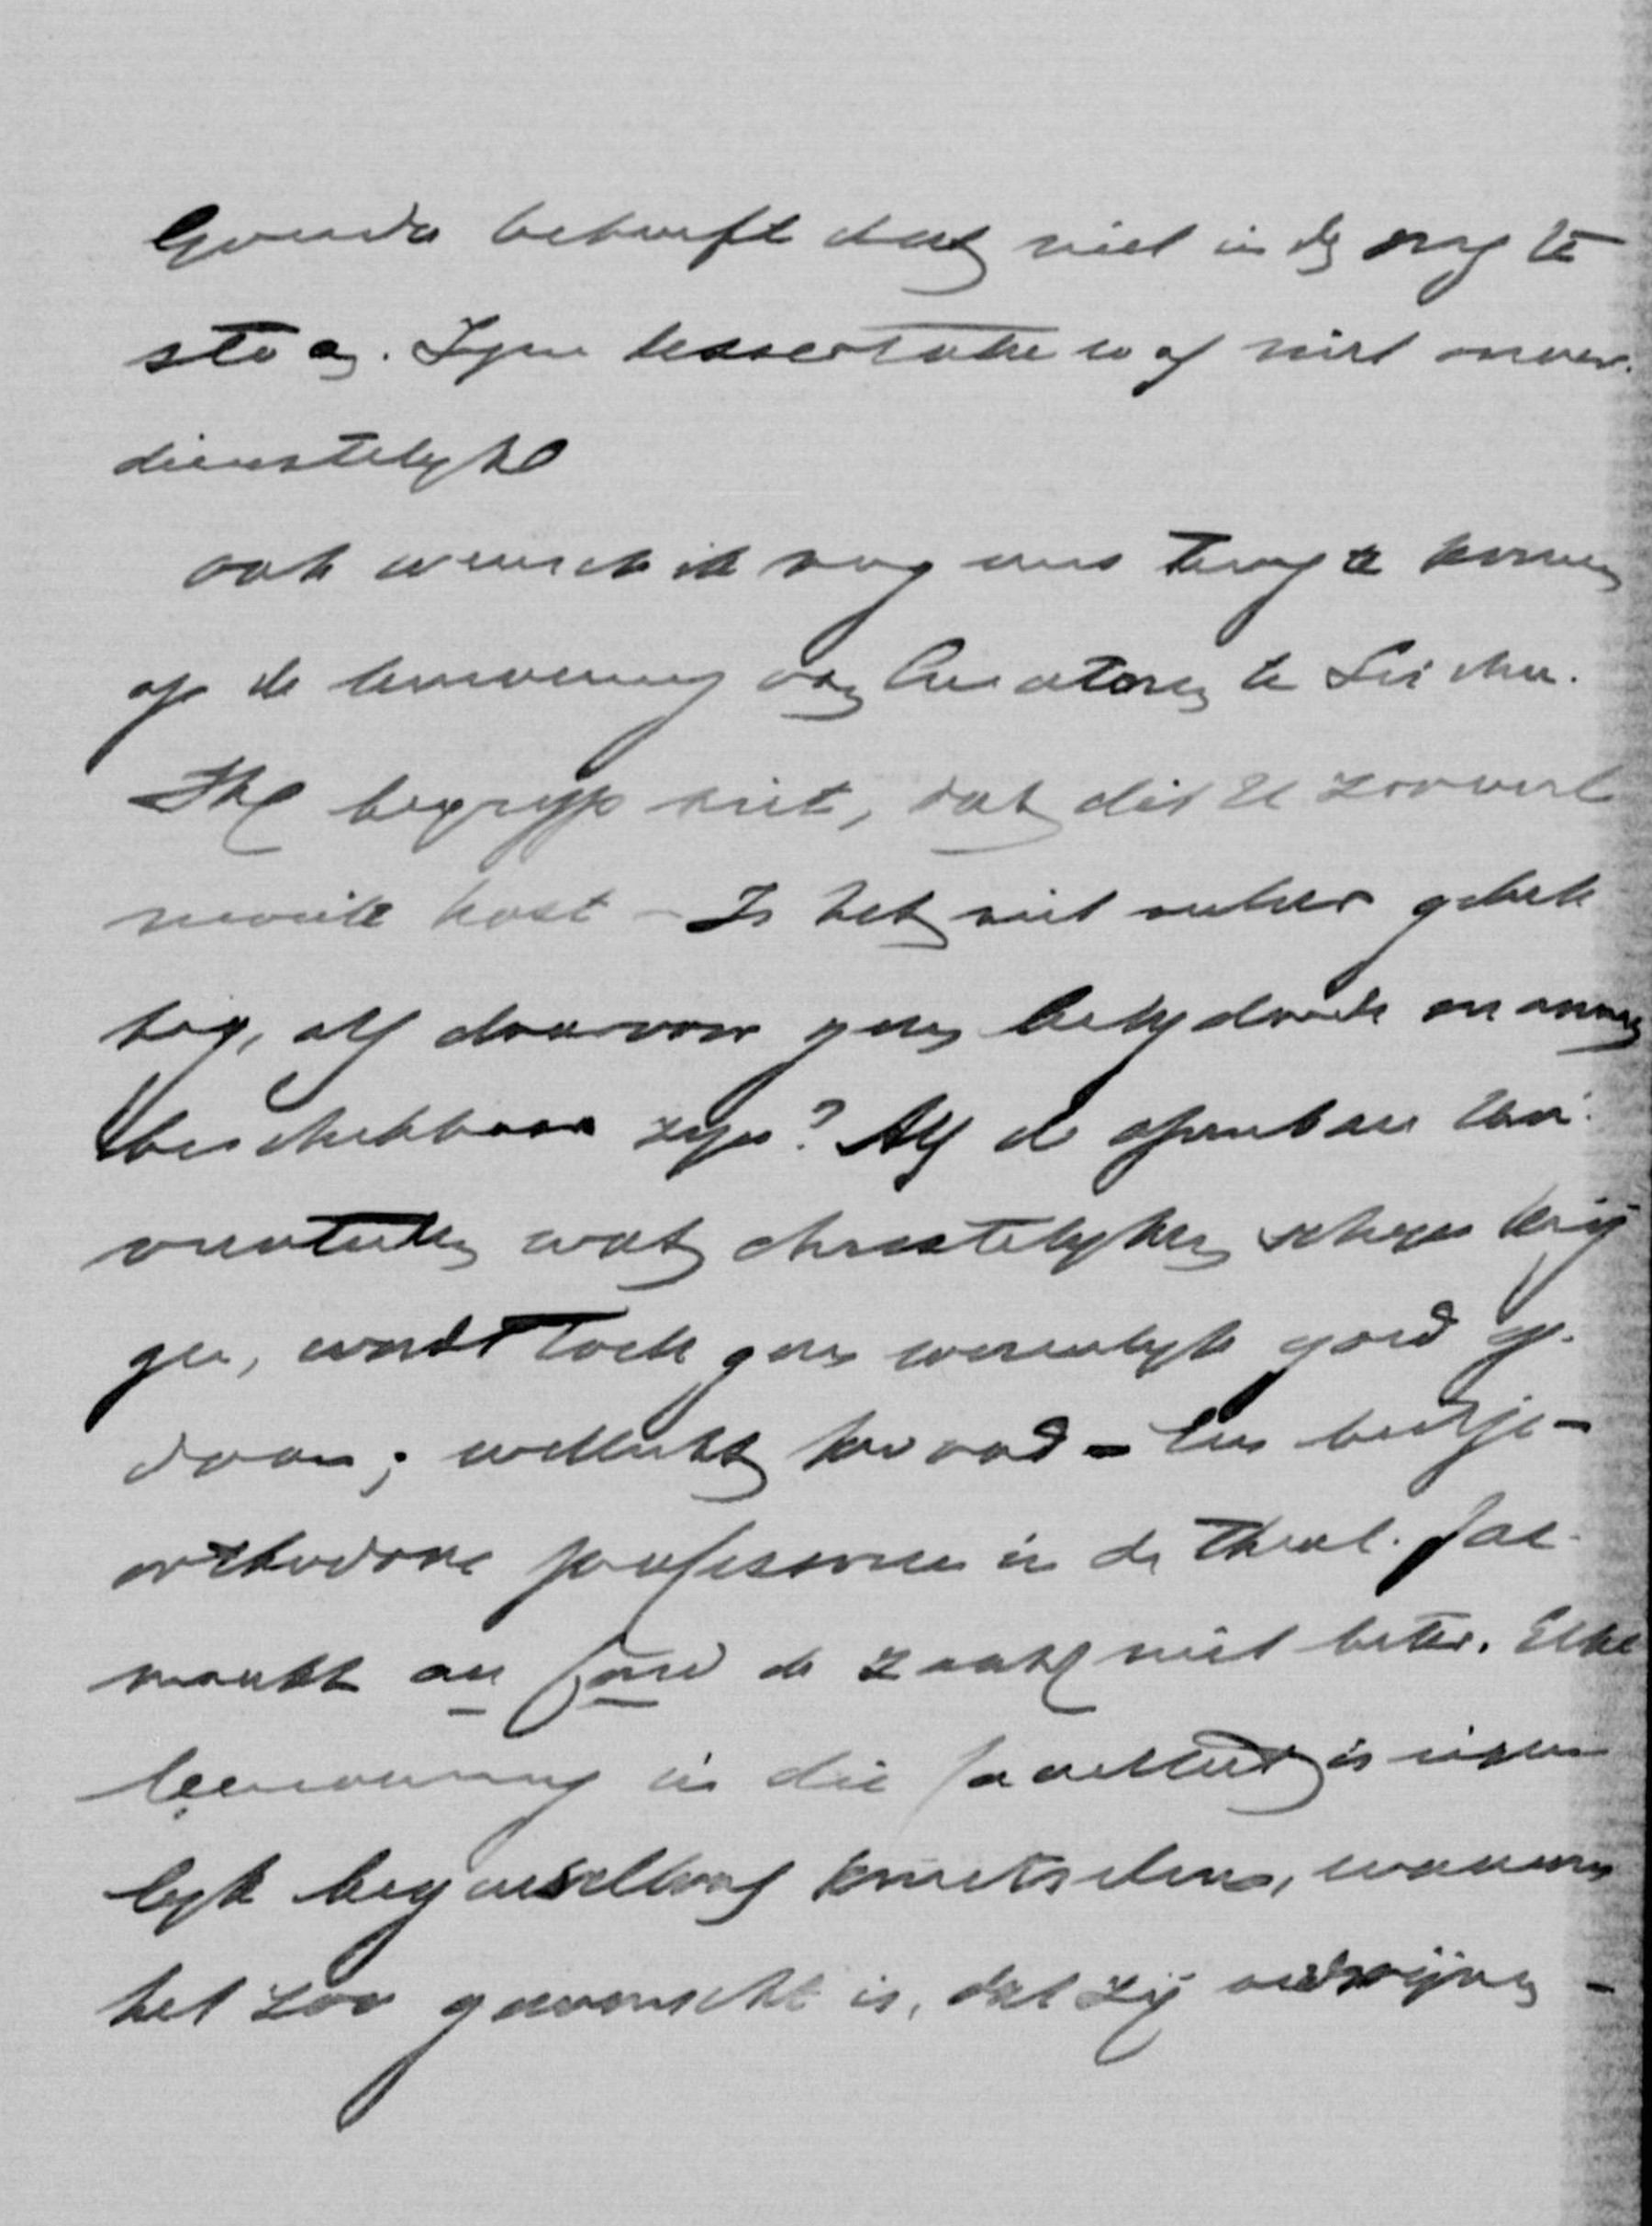 Gouda behoeft dat niet in den weg te
staan. Zijn dissertatie was niet onver-
dienstelijk
Ook wensch ik nog eens terug te komen
op de benoeming van Curatoren te Leiden.
Ik begrijp niet, dat dit U zooveel
moeite kost – Is het niet zeker geluk
kig, als daarvoor geen
beschikbaar zijn? Als de openbare Uni-
versiteiten wat christelijken schijn krij
gen, wordt toch geen wezenlijk goed ge-
daan; wellicht kwaad – Een beetje –
orthodoxe professoren in de theol. fac.
maakt au fond de zaak niet beter. Elke
benoeming in die faculteit is eigen
lijk beginselloos knutselen, waarom
het zoo gewenscht is, dat zij verdwijnen –